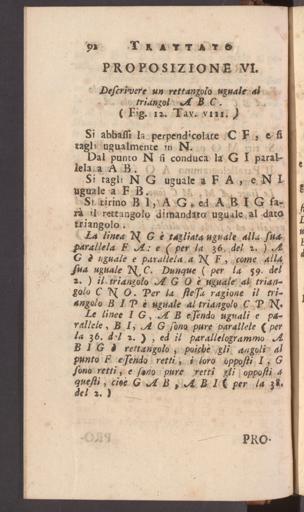 92 TRATTATO
PROPOSIZIONE VI.
Descrivere un rettangolo uguale al
triangol A B C.
( Fig. 12. Tav. VIII. )
Si abbassi la perpendicolare C F, e si
tagli ugualmente in N.
Dal punto N si conduca la G I paral-
lela a A B.
Si tagli N G uguale a F A, e N I
uguale a F B.
Si tirino B I, A G, ed A B I G sa-
rà il rettangolo dimandato uguale al dato
triangolo.
La linea N G è tagliata uguale alla sua
parallela F A: e ( per la 36. del 2. ) A
G è uguale e parallela a N F, come alla
sua uguale N C. Dunque ( per la 59. del
2. ) il triangolo A G O è uguale al trian-
golo C N O. Per la stessa ragione il tri-
angolo B I P è uguale al triangolo C P N.
Le linee I G, A B essendo uguali e pa-
rallele, B I, A G sono pure parallele ( per
la 36. del 2. ), ed il parallelogrammo A
B I G è rettangolo, poichè gli angoli al
punto F essendo retti, i loro opposti I, G
sono retti, e sono pure retti gli opposti a
questi, cioè G A B, A B I ( per la 38.
del 2. )
PRO-